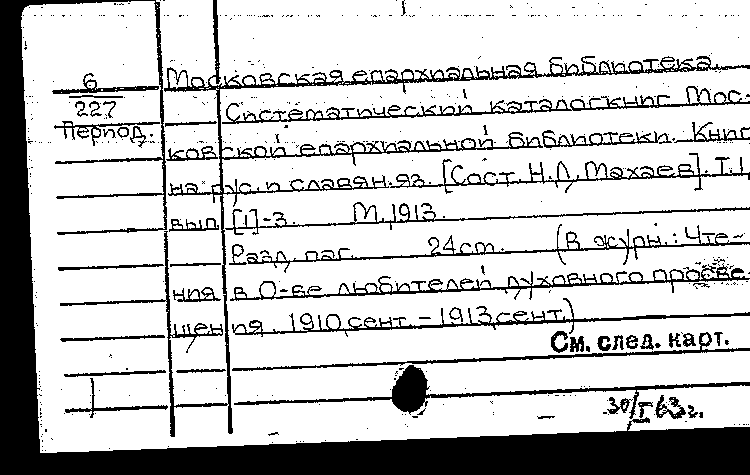 6
Московская епархиальная библиотека.
227
Систематический каталог книг Мос-
Период.
ковской епархиальной библиотеки. Книг
на рус. и славян. яз. [Сост. Н.Д. Махаев]. Т.I,
вып. [1]-3. М., 1913.
Разд. паг. 24 ст. (В журн.: Чте-
ния в О-ве любителей духовного просве-
щения. 1910, сент. - 1913, сент.)
См. след. карт.
30/I 63 г.